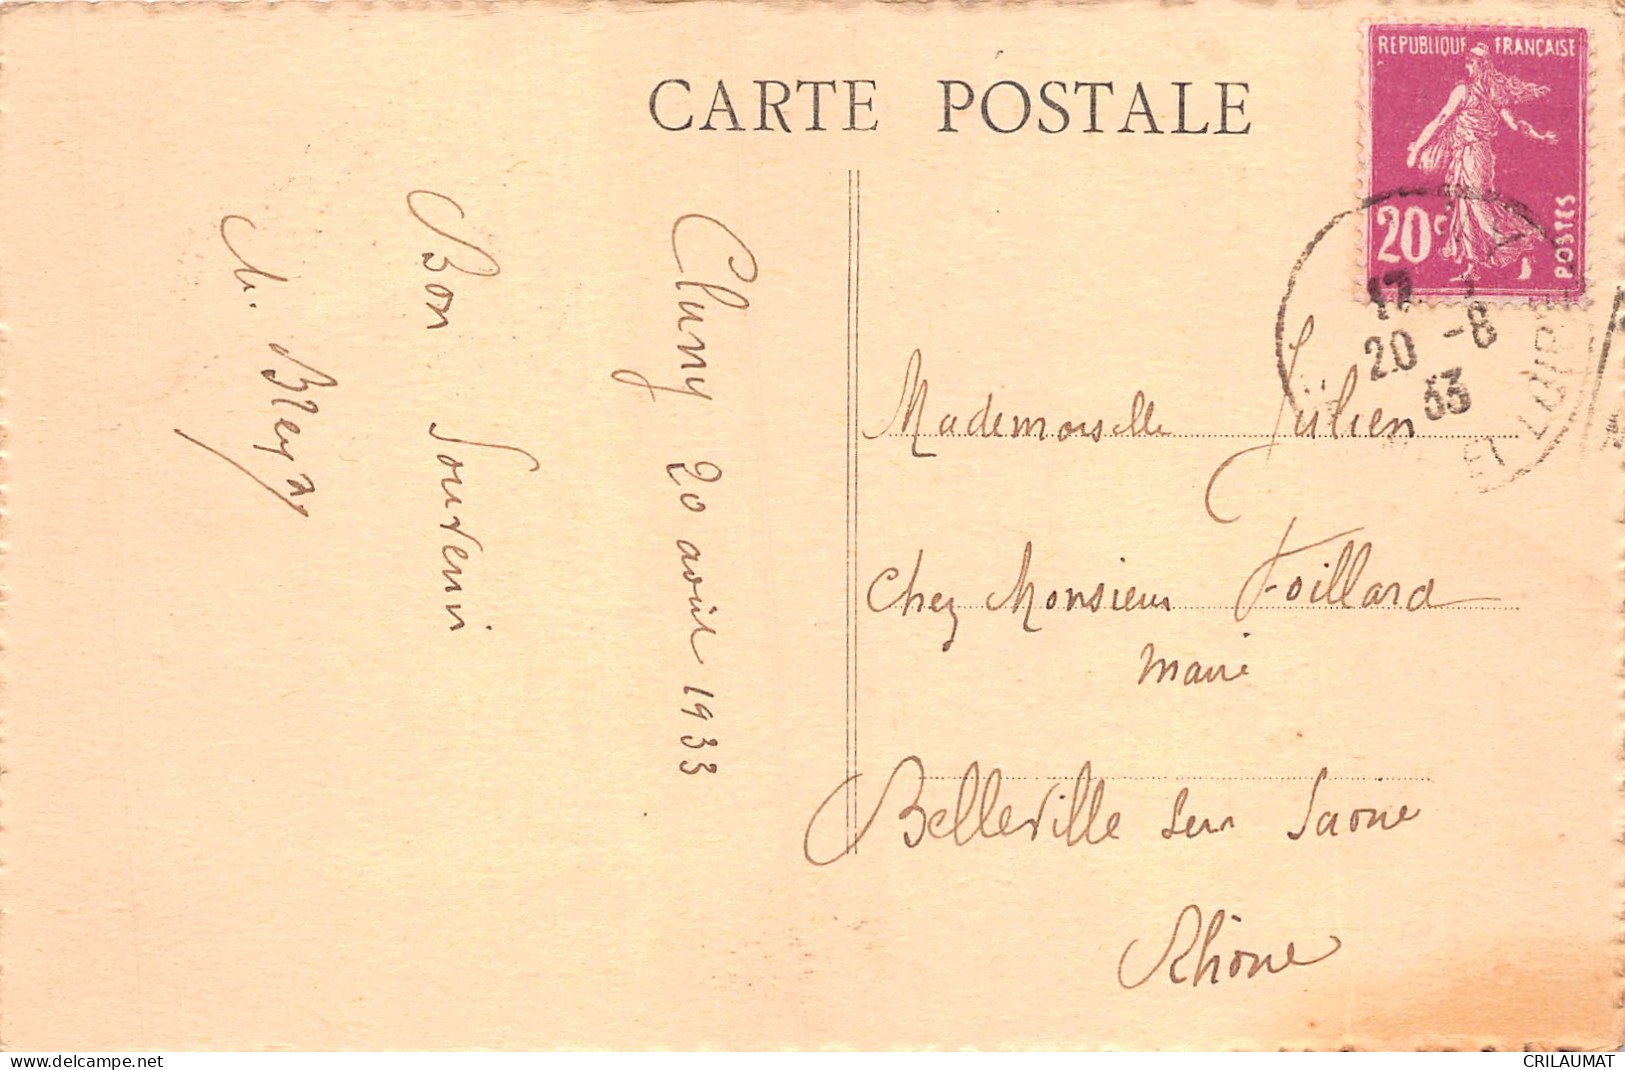 CARTE POSTALE
REPUBLIQUE FRANÇAISE
20c
POSTES
17
20 -8
33
ET LOIRE
Cluny 20 août 1933
Bon Souvenir
Mademoiselle Julien
Chez Monsieur Foillard
Maire
Belleville sur Saône
Rhône
CRILAUMAT